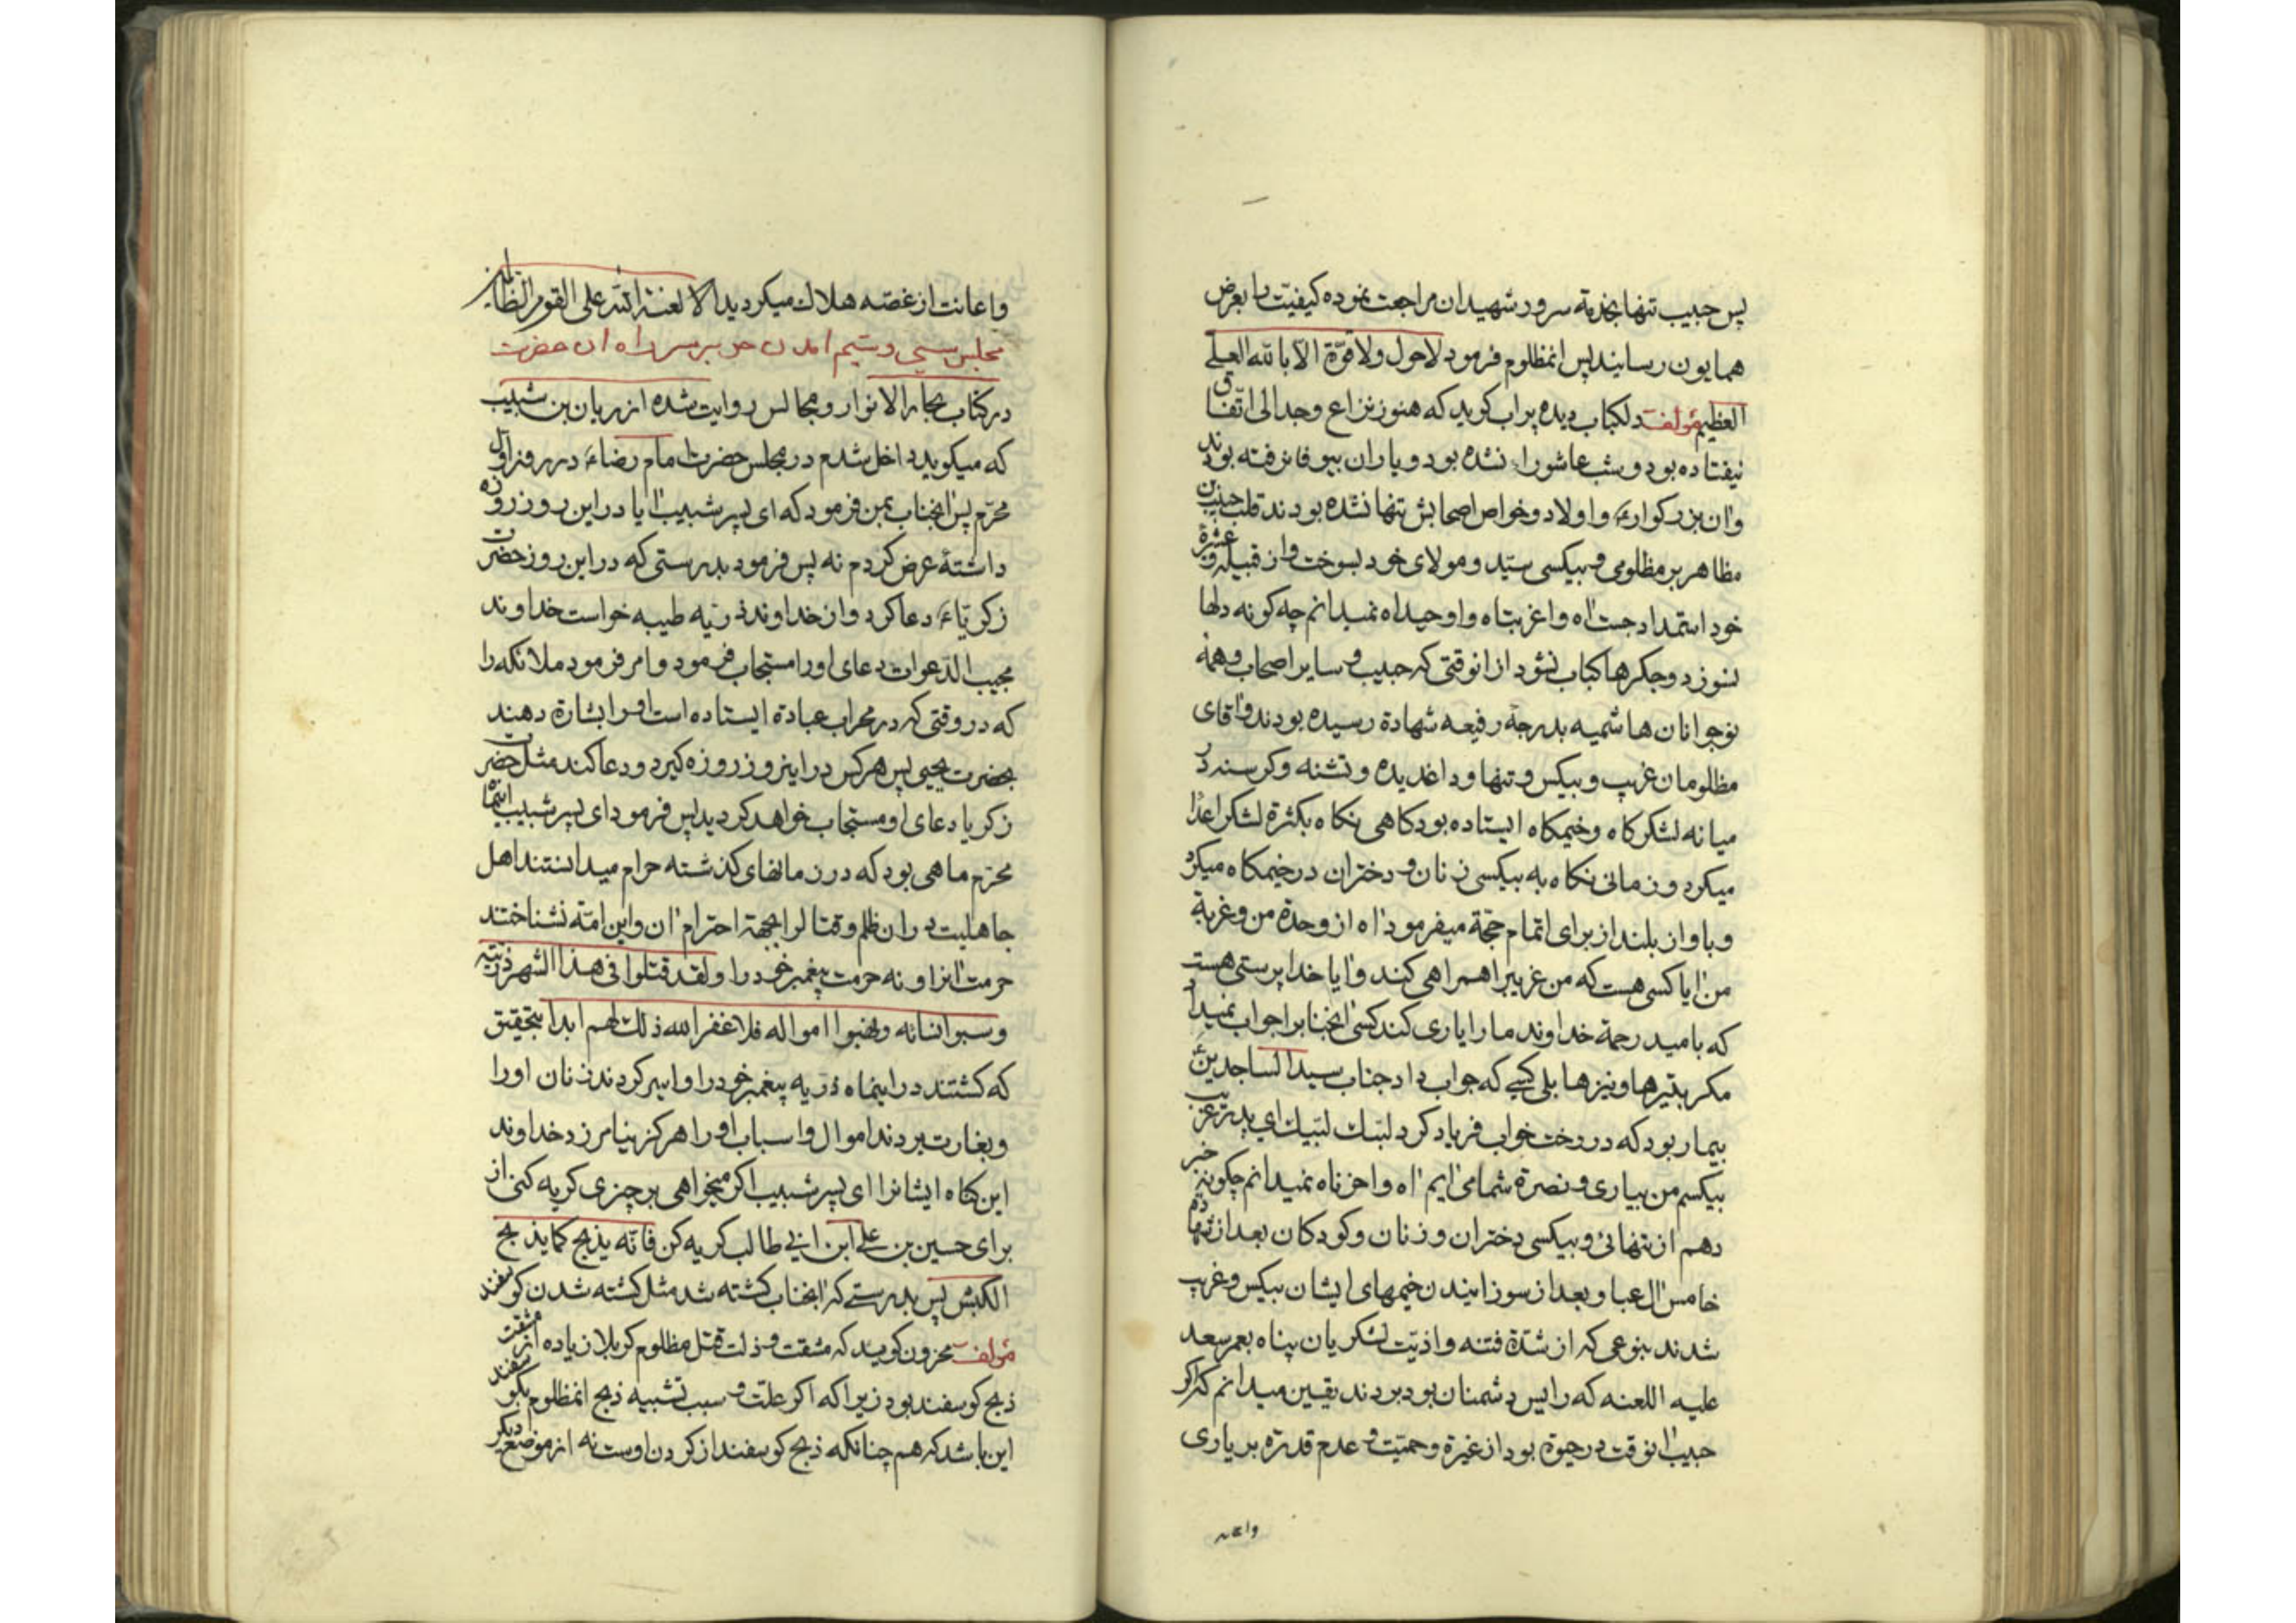 پس حبیب تنها بخدمة سرور شهیدان مراجعت نموده کیفیّت را بعرض
همایون رسانید پس انمظلوم فرمود لاحول ولا قوّة الّا بالله العلے
العظیم مؤلف دلکباب دیده پراب کوید که هنوز نزاع وجدالی اتّفاق
نیفتاده بود وشب عاشورا نشده بود ویاران بیوفا نرفته بودند
وان بزرکوار واولاد وخواص اصحابش تنها نشده بودند قلب حبیب بن
مظاهر بر مظلومی وبیکسی سیّد ومولای خود بسوخت واز قبیله وعشیرة
خود استمداد جست اه واغربتاه واوحیداه نمیدانم چه کونه دلها
نسوزد وجکرها کباب نشود از انوقتی که حبیب وسایر اصحاب وهمهٔ
نوجوانان هاشمیه بدرجة رفیعه شهادة رسیده بودند واقای
مظلومان غریب وبیکس وتنها وداغدیده وتشنه وکرسنه در
میانه لشکرکاه وخیمکاه ایستاده بود کاهی نکاه بکثرة لشکر اعدا
میکرد وزمانی نکاه به بیکسی زنان ودختران در خیمکاه میکرد
وباواز بلند از برای اتمام حجّة میفرمود اه از وحدة من وغربة
من ایا کسی هست که من غریبرا همراهی کند وایا خدا پرستی هست
که بامید رحمة خداوند ما را یاری کند کسی انجنابرا جواب نمیداد
مکر بتیرها ونیزها بلی کسے که جواب داد جناب سید الساجدین
بیمار بود که در رخت خواب فریاد کرد لبّیك لبّیك ای پدر غریب
بیکسم من بیاری ونصرة شما می ایم اه واحزناه نمیدانم چکونه خبر
دهم از تنهائی وبیکسی دختران وزنان وکودکان بعد از شهادة
خامس ال عبا وبعد از سوزانیدن خیمهای ایشان بیکس وغریب
شدند بنوعی که از شدّة فتنه واذیّت لشکریان پناه بعمر سعد
علیه اللعنه که رایس دشمنان بود بردند یقین میدانم که اکر
حبیب انوقت در حیوة بود از غیرة وحمیّت وعدم قدرة بر یاری
واعانت
واعانت از غصّه هلاك میکردید الا لعنة الله علی القوم الظالمین
مجلس سیی وششم امدن حر بر سر راه ان حضرت
در کتاب بحار الانوار ومجالس روایت شده از ریان بن شبیب
که میکوید داخل شدم در مجلس حضرت امام رضاء در روز اوّل
محرّم پس انجناب بمن فرمود که ای پسر شبیب ایا در این روز روزه
داشتهٔ عرض کردم نه پس فرمود بدرستی که در این روز حضرت
زکریّاء دعا کرد واز خداوند ذریّه طیبه خواست خداوند
مجیب الدّعوات دعای اورا مستجاب فرمود وامر فرمود ملائکه را
که در وقتی که در محراب عبادة ایستاده است اورا بشارة دهند
بحضرت یحیی پس هر کس در اینروز روزه کیرد ودعا کند مثل حضرت
زکریا دعای او مستجاب خواهد کردید پس فرمود ای پسر شبیب اینماه
محرّم ماهی بود که در زمانهای کذشته حرام میدانستند اهل
جاهلیت در ان ظلم وقتال را بجهة احترام ان واین امّة نشناختند
حرمت انرا ونه حرمت پیغمبر خود را ولقد قتلوا فی هذا الشهر ذریّته
وسبوا نسائه ونهبوا امواله فلا غفر الله ذلك لهم ابدا بتحقیق
که کشتند در اینماه ذریه پیغمبر خود را واسیر کردند زنان اورا
وبغارت بردند اموال واسباب اورا هرکز نیامرزد خداوند
این کناه ایشانرا ای پسر شبیب اکر میخواهی بر چیزی کریه کنی از
برای حسین بن علی ابن ابی طالب کریه کن فانّه یذبح کما یذبح
الکبش پس بدرستے که انجناب کشته شد مثل کشته شدن کوسفند
مؤلف محزون کوید که مشقت وذلت قتل مظلوم کربلا زیاده از مشقت
ذبح کوسفند بود زیرا که اکر علّت وسبب تشبیه ذبح انمظلوم بکوسفند
این باشد که هم چنانکه ذبح کوسفند از کردن اوست نه از موضع دیکر